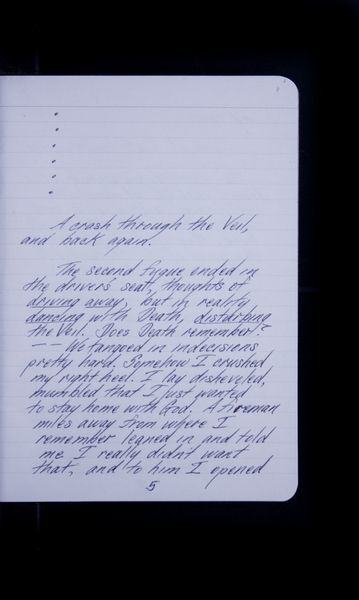 A crash through the Veil,
and back again.
The second fugue ended in
the drivers seat, thoughts of
driving away, but in reality
dancing with Death, disturbing
the Veil. Does Death remember?
—— We tangoed in indecisions
pretty hard. Somehow I crushed
my right heel. I lay disheveled,
mumbled that I just wanted
to stay home with God. A fireman
miles away from where I
remember leaned in and told
me I really didn't want
that, and to him I opened
5